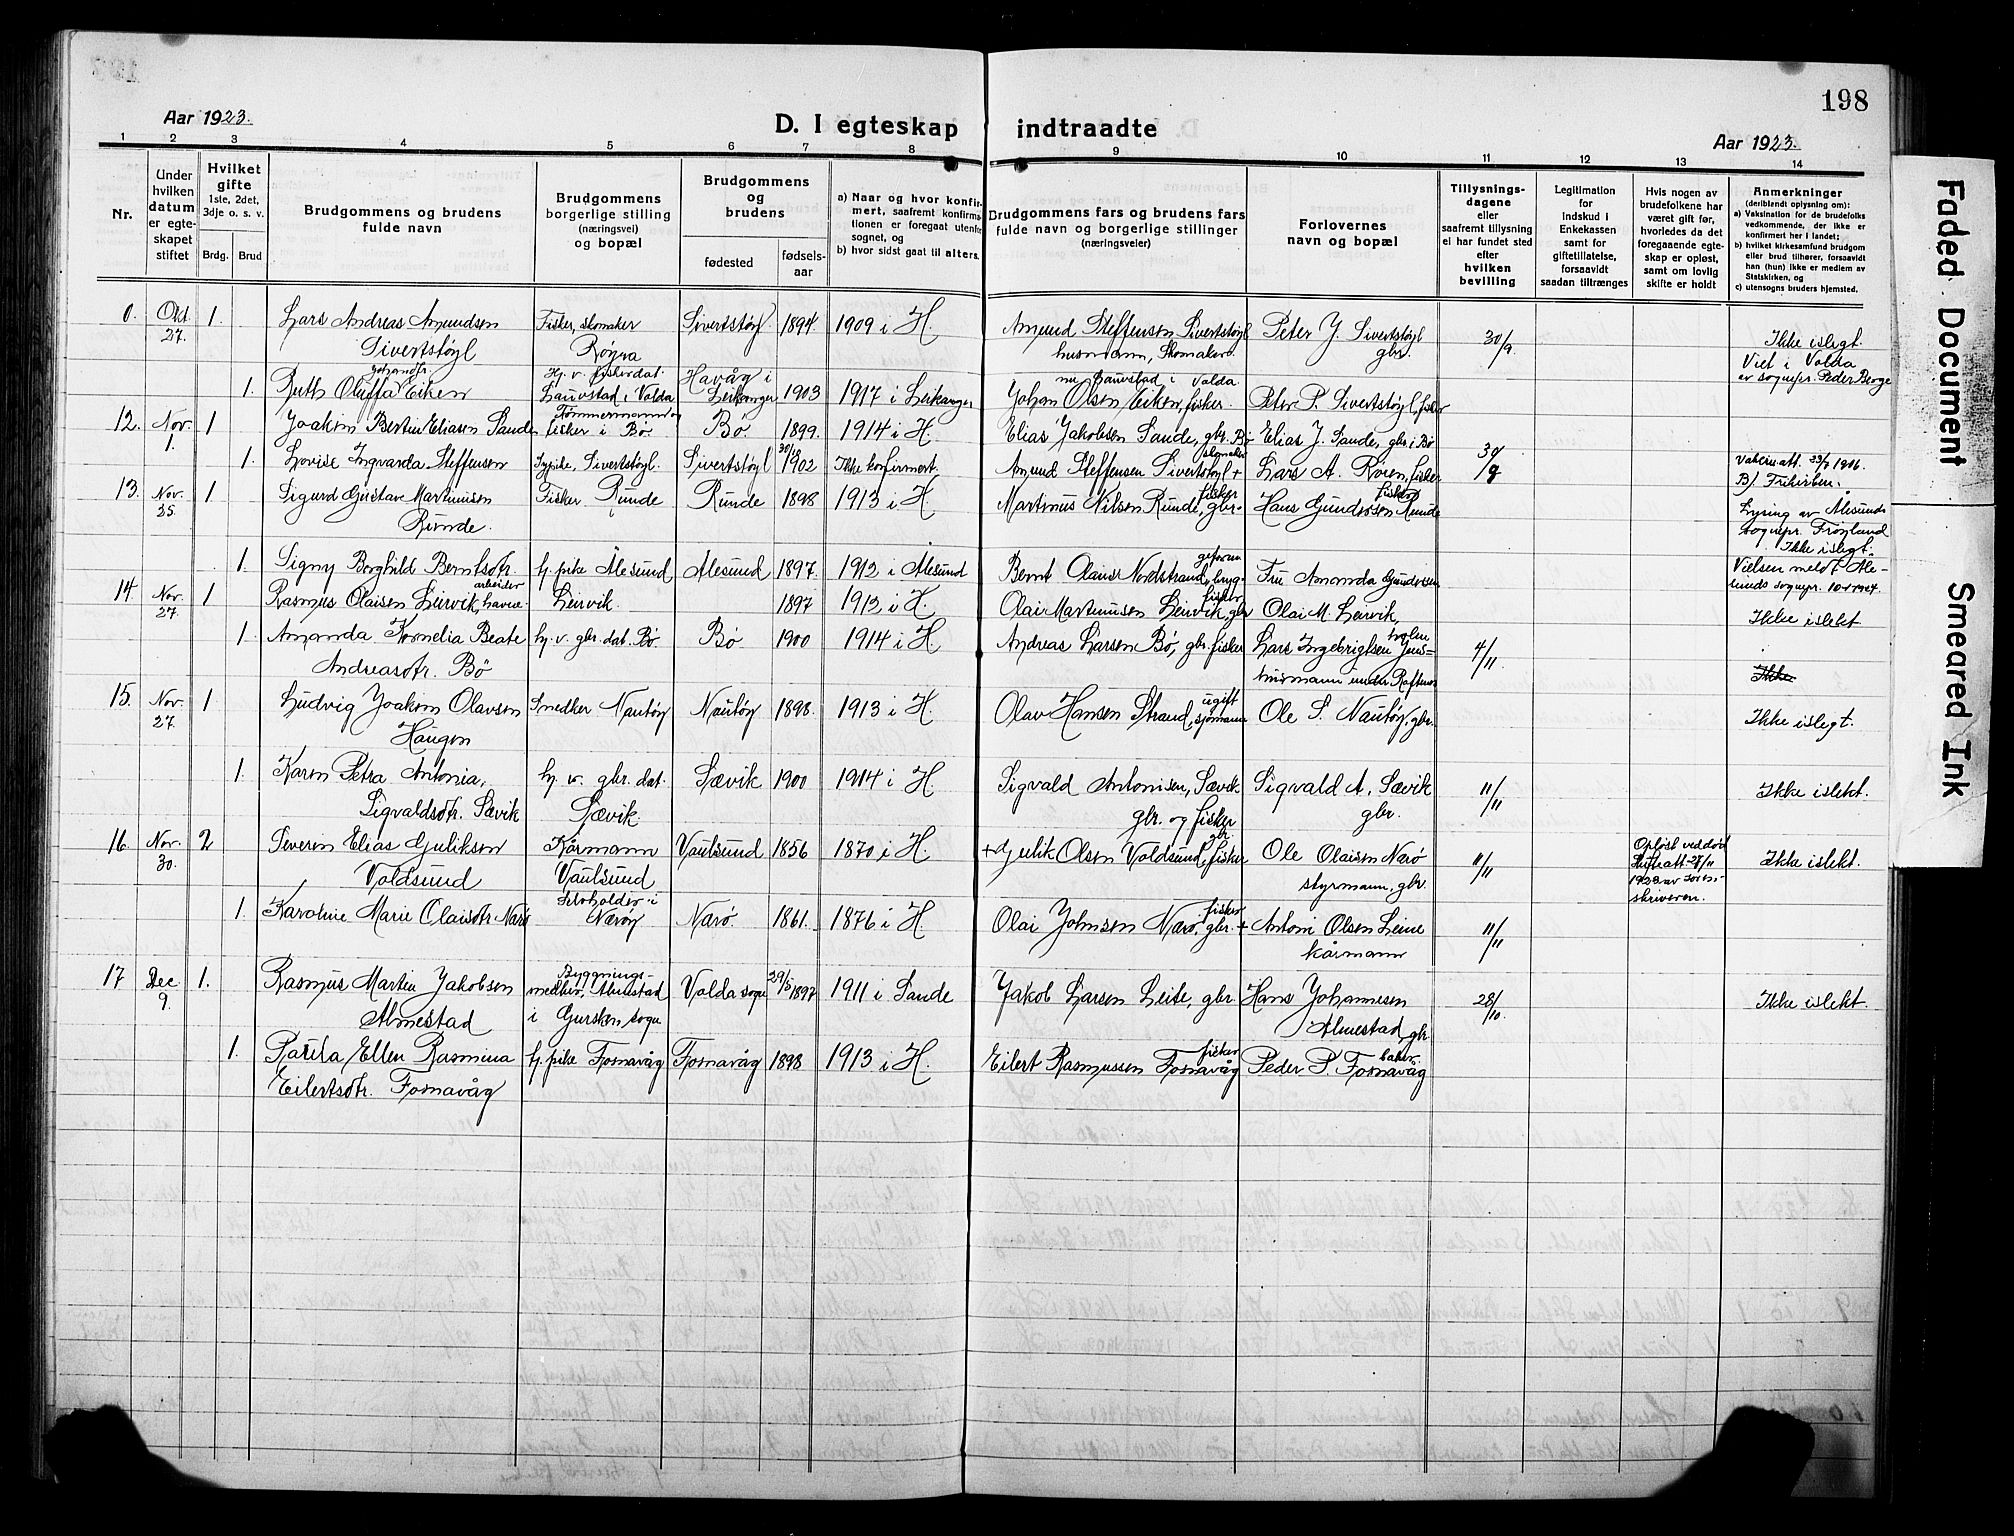 198
Aar 1923.
D. I egteskap indtraadte
Aar 1923.
1 2 3 4 5 6 7 8 9 10 11 12 13 14
Nr.
Under
hvilken
datum
er egte-
skapet
stiftet
Hvilket
gifte
1ste, 2det,
3dje o. s. v.
Brdg. Brud
Brudgommens og brudens
fulde navn
Brudgommens
borgerlige stilling
(næringsvei)
og bopæl
Brudgommens
og
brudens
fødested
fødsels-
aar
a) Naar og hvor konfir-
mert, saafremt konfirma-
tionen er foregaat utenfor
sognet, og
b) hvor sidst gaat til alters.
Brudgommens fars og brudens fars
fulde navn og borgerlige stillinger
(næringsveier)
Forlovernes
navn og bopæl
Tillysnings-
dagene
eller
saafremt tillysning
ei har fundet sted
efter
hvilken
bevilling
Legitimation
for
Indskud i
Enkekassen
samt for
giftetillatelse,
forsaavidt
saadan tiltrænges
Hvis nogen av
brudefolkene har
været gift før,
hvorledes da det
foregaaende egte-
skap er opløst,
samt om lovlig
skifte er holdt
Anmerkninger
(deriblandt oplysning om):
a) Vaksination for de brudefolks
vedkommende, der ikke er
konfirmert her i landet;
b) hvilket kirkesamfund brudgom
eller brud tilhører, forsaavidt
han (hun) ikke er medlem av
Statskirken, og
c) utensogns bruders hjemsted.
Okt 27. 1. Lars Andreas Amundsen Sivertstøyl Fisker, skomaker Røyra Sivertstøyl 1894. 1909 i H. Amund Steffensen Sivertstøyl husmann, Skomaker. Peter J. Sivertstøyl gbr. 30/9 Ikke islegt.
Viet i Volda
av sognepr. Peder Berge
1. Ruth Oluffa Johansdtr. Eiken Hj. v. fiskerdat. Lauvstad i Volda Havåg i Leikanger 1903 1917 i Leikanger Johan Olsen Eiken, fisker. nu Lauvstad i Volda Peter P. Sivertstøyl, fisker
12. Nov. 1. 1 Joakim Bertin Eliasen Sande Tømmermann og fisker i Bø. Bø. 1899. 1914 i H. Elias Jakobsen Sande, gbr. Bø Elias J. Sande, gbr. i Bø
1. Lovise Ingvarda Steffensen Sypike, Sivertstøyl. Sivertstøyl 1902 Ikke konfirmert. Amund Steffensen Sivertstøyl + skomaker Lars A. Røren, fisker 30/9 Vaksin.att. 23/7 1906.
B) Frikirken.
13. Nov. 25. 1 Sigurd Gustav Martinusen Runde. Fisker Runde Runde 1898 1913 i H. Martinus Nilsen Runde, gbr. fisker Hans Gundersen Runde fisker Lysing av Ålesunds
sognepr. Frøyland
Ikke islegt.
1. Signy Borghild Berntsdtr. hj. pike Ålesund Ålesund 1897. 1912 i Ålesund Bernt Olaus Nordstrand, Fru Amanda Gundersen Vielsen meldt Åle-
sunds sognepr. 10
14 Nov. 27. 1 Rasmus Olaisen Leirvik, havnearbeider Leirvik. 1897 1912 i H. Olai Martinusen Leirvik, gbr fisker Olai M. Leirvik, Ikke islekt
1. Amanda Kornelia Beate Andreasdtr. Bø hj. v. gbr. dat. Bø. Bø. 1900 1914 i H. Andreas Larsen Bø, gbr. fisker Lars Ingebrigtsen Jensholm husmann under 4/11. Ikke
15. Nov. 27. 1 Ludvig Joakim Olavsen Haugen Snedker Nautøy Nautøy 1898. 1913 i H. Olav Hansen Strand, sjømann ugift Ole S. Nautøy, gbr. Ikke islegt.
1. Karen Petra Antonia, Sigvaldsdtr. Sævik hj. v. gbr. dat. Sævik. Sævik 1900 1914 i H. Sigvald Antonisen, Sævik gbr. og fisker Sigvald A. Sævik gbr. 11/11 Ikke islekt.
16. Nov. 30. 2 Severin Elias Guliksen Voldsund Kårmann Vaulsund Vaulsund 1856 1870 i H. + Gulik Olsen Voldsund, gbr. fisker Ole Olaisen Nærø styrmann, gbr. 11/11 Opløst ved død
Skifteatt. 28/11
1923 av soren-
skriveren. Ikke islekt.
1. Karoline Marie Olaisdtr Nærø i Nærøy Nærø. 1861. 1876 i H. Olai Johnsen Nærø, fisker gbr. + Antoni Olsen Leine kårmann 11/11
17 Dec 9. 1. Rasmus Martin Jakobsen Almestad Bygnings-
snedker, Almestad
i Gursken sogn Volda sogn 29/5 1897 1911 i Sande Jakob Larsen Leite, gbr. Hans Johannesen Almestad gbr. 28/10 Ikke islekt.
1. Paula Ellen Rasmina Eilertsdtr. Fosnavåg hj. pike Fosnavåg Fosnavåg 1898 1913 i H. Eilert Rasmussen Fosnavåg fisker Peder P. Fosnavåg baker
Faded Document
Smeared Ink